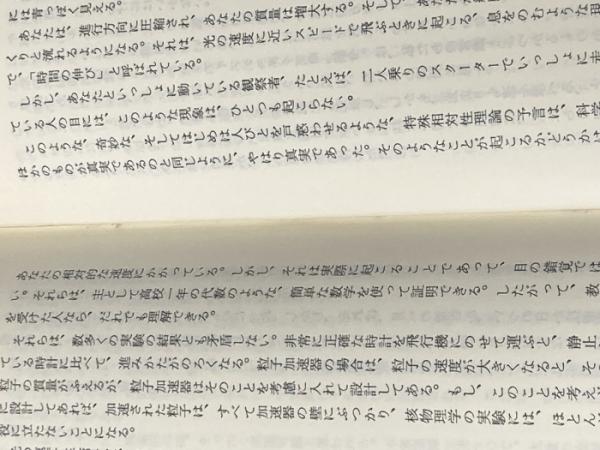 には青っぽく見える。
あなたは、進行方向に圧縮され、あなたの質量は増大する。そして、あなた
くりと流れるようになる。それは、光の速度に近いスピードで飛ぶときに起こる、息をのむような現
で、「時間の伸び」と呼ばれている。
しかし、あなたといっしょに動いている観察者、たとえば、二人乗りのスクーターでいっしょに走
ている人の目には、このような現象は、ひとつも起こらない。
このような、奇妙な、そしてはじめは人びとを戸惑わせるような、特殊相対性理論の予言は、科学
ほかのものが真実であるのと同じように、やはり真実であった。そのようなことが起こるか、どうかは
あなたの相対的な速度にかかっている。しかし、それは実際に起こることであって、目の錯覚では
い。それらは、主として高校一年の代数のような、簡単な数学を使って証明できる。したがって、教
を受けた人なら、だれでも理解できる。
それらは、数多くの実験の結果とも矛盾しない。非常に正確な時計を飛行機にのせて運ぶと、静止
ている時計に比べて、進みかたがのろくなる。粒子加速器の場合は、粒子の速度が大きくなると、そ
粒子の質量がふえるが、粒子加速器はそのことを考慮に入れて設計してある。もし、このことを考え
に設計してあれば、加速された粒子は、すべて加速器の壁にぶつかり、核物理学の実験には、ほとん
役に立たないことになる。